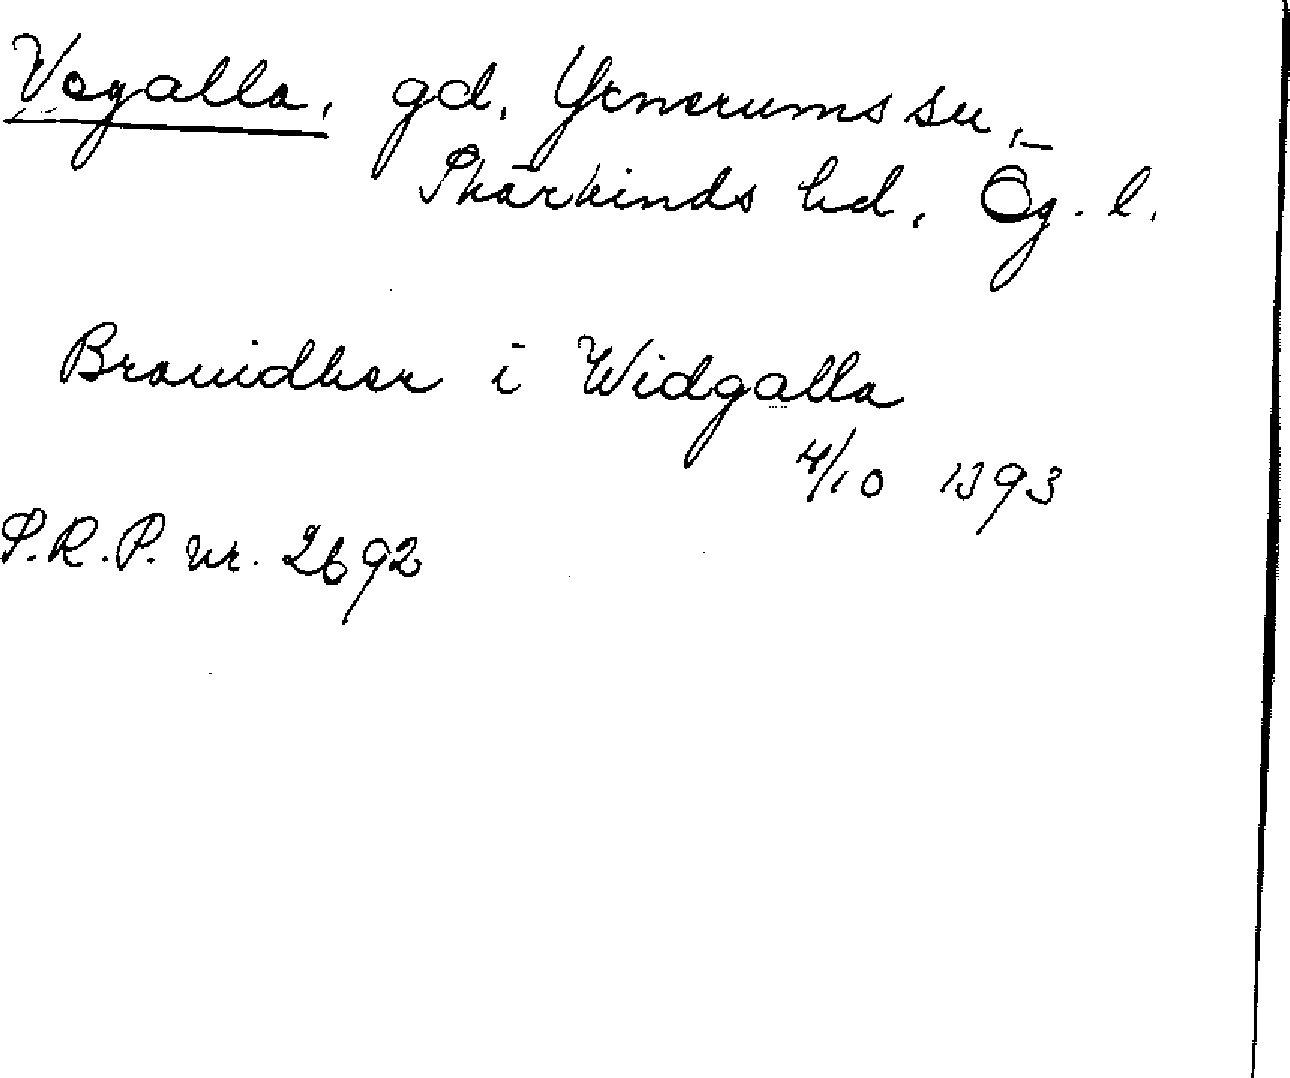 Vegalla, gd, Yxnerums sn,
Skärkinds hd, Ög. l.
Brouidher i Widgalla
4/10 1393
S.R.P. nr. 2692